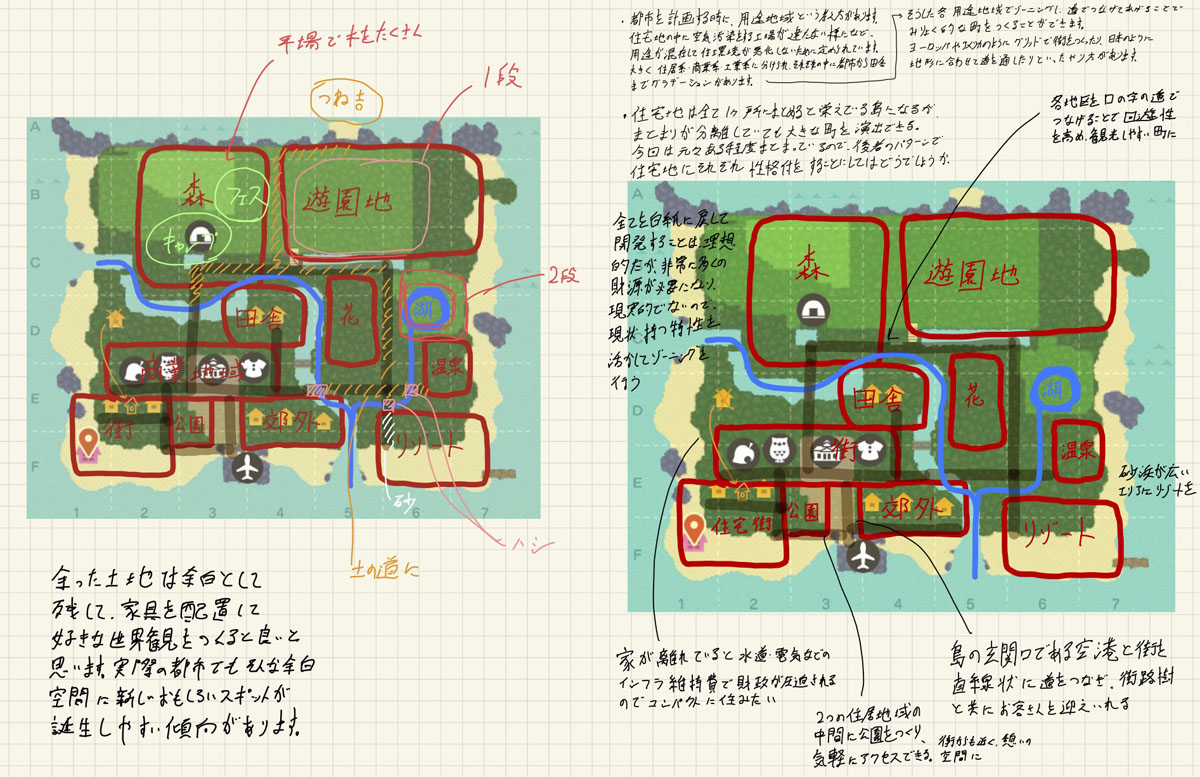 平場で木をたくさん
つね吉
1段
森
フェス
キャンプ
遊園地
2段
湖
田舎
花
温泉
街
公園
郊外
リゾート
砂
ハシ
土の道に
余った土地は余白として
残して、家具を配置して
好きな世界観をつくると良いと
思います。実際の都市でもそんな余白
空間に新しいおもしろいスポットが
誕生しやすい傾向があります。
A
B
C
D
E
F
1
2
3
4
5
6
7
・都市を計画する時に、用途地域という考え方があります。
住宅地の中に空気汚染する工場が建たない様になど、
用途が混在して住環境が悪化しないために定められています。
大きく住居系・商業系・工業系に分けられ、それぞれの中に都市から田舎
までグラデーションがあります。
そうした各用途地域でゾーニングし、道でつなげてあげることで
みりょく的な町をつくることができます。
ヨーロッパやアメリカのようにグリッドで街をつくったり、日本のように
地形に合わせて道を通したりといったやり方があります。
・住宅地は全て1ヶ所にまとめると栄えている島になるが、
まとまりが分離していても大きな町を演出できる。
今回は元々ある程度まとまっているので、後者のパターンで
住宅地にそれぞれ性格付をすることにしてはどうでしょうか。
各地区をロの字の道で
つなげることで回遊性
を高め、観光しやすい町に
全てを白紙に戻して
開発することは、理想
的だが、非常に多くの
財源が必要になり、
現実的でないので、
現状持つ特性を
活かしてゾーニングを
行う
森
遊園地
田舎
花
湖
街
温泉
住宅街
公園
郊外
リゾート
砂浜が広い
エリアにリゾートを
D
E
F
1
2
3
4
5
6
7
家が離れていると水道・電気などの
インフラ維持費で財政が圧迫される
のでコンパクトに住みたい
2つの住居地域の
中間に公園をつくり、
気軽にアクセスできる。
街からも近く、憩いの
空間に
島の玄関口である空港と街を
直線状に道をつなぎ、街路樹
と共にお客さんを迎えいれる